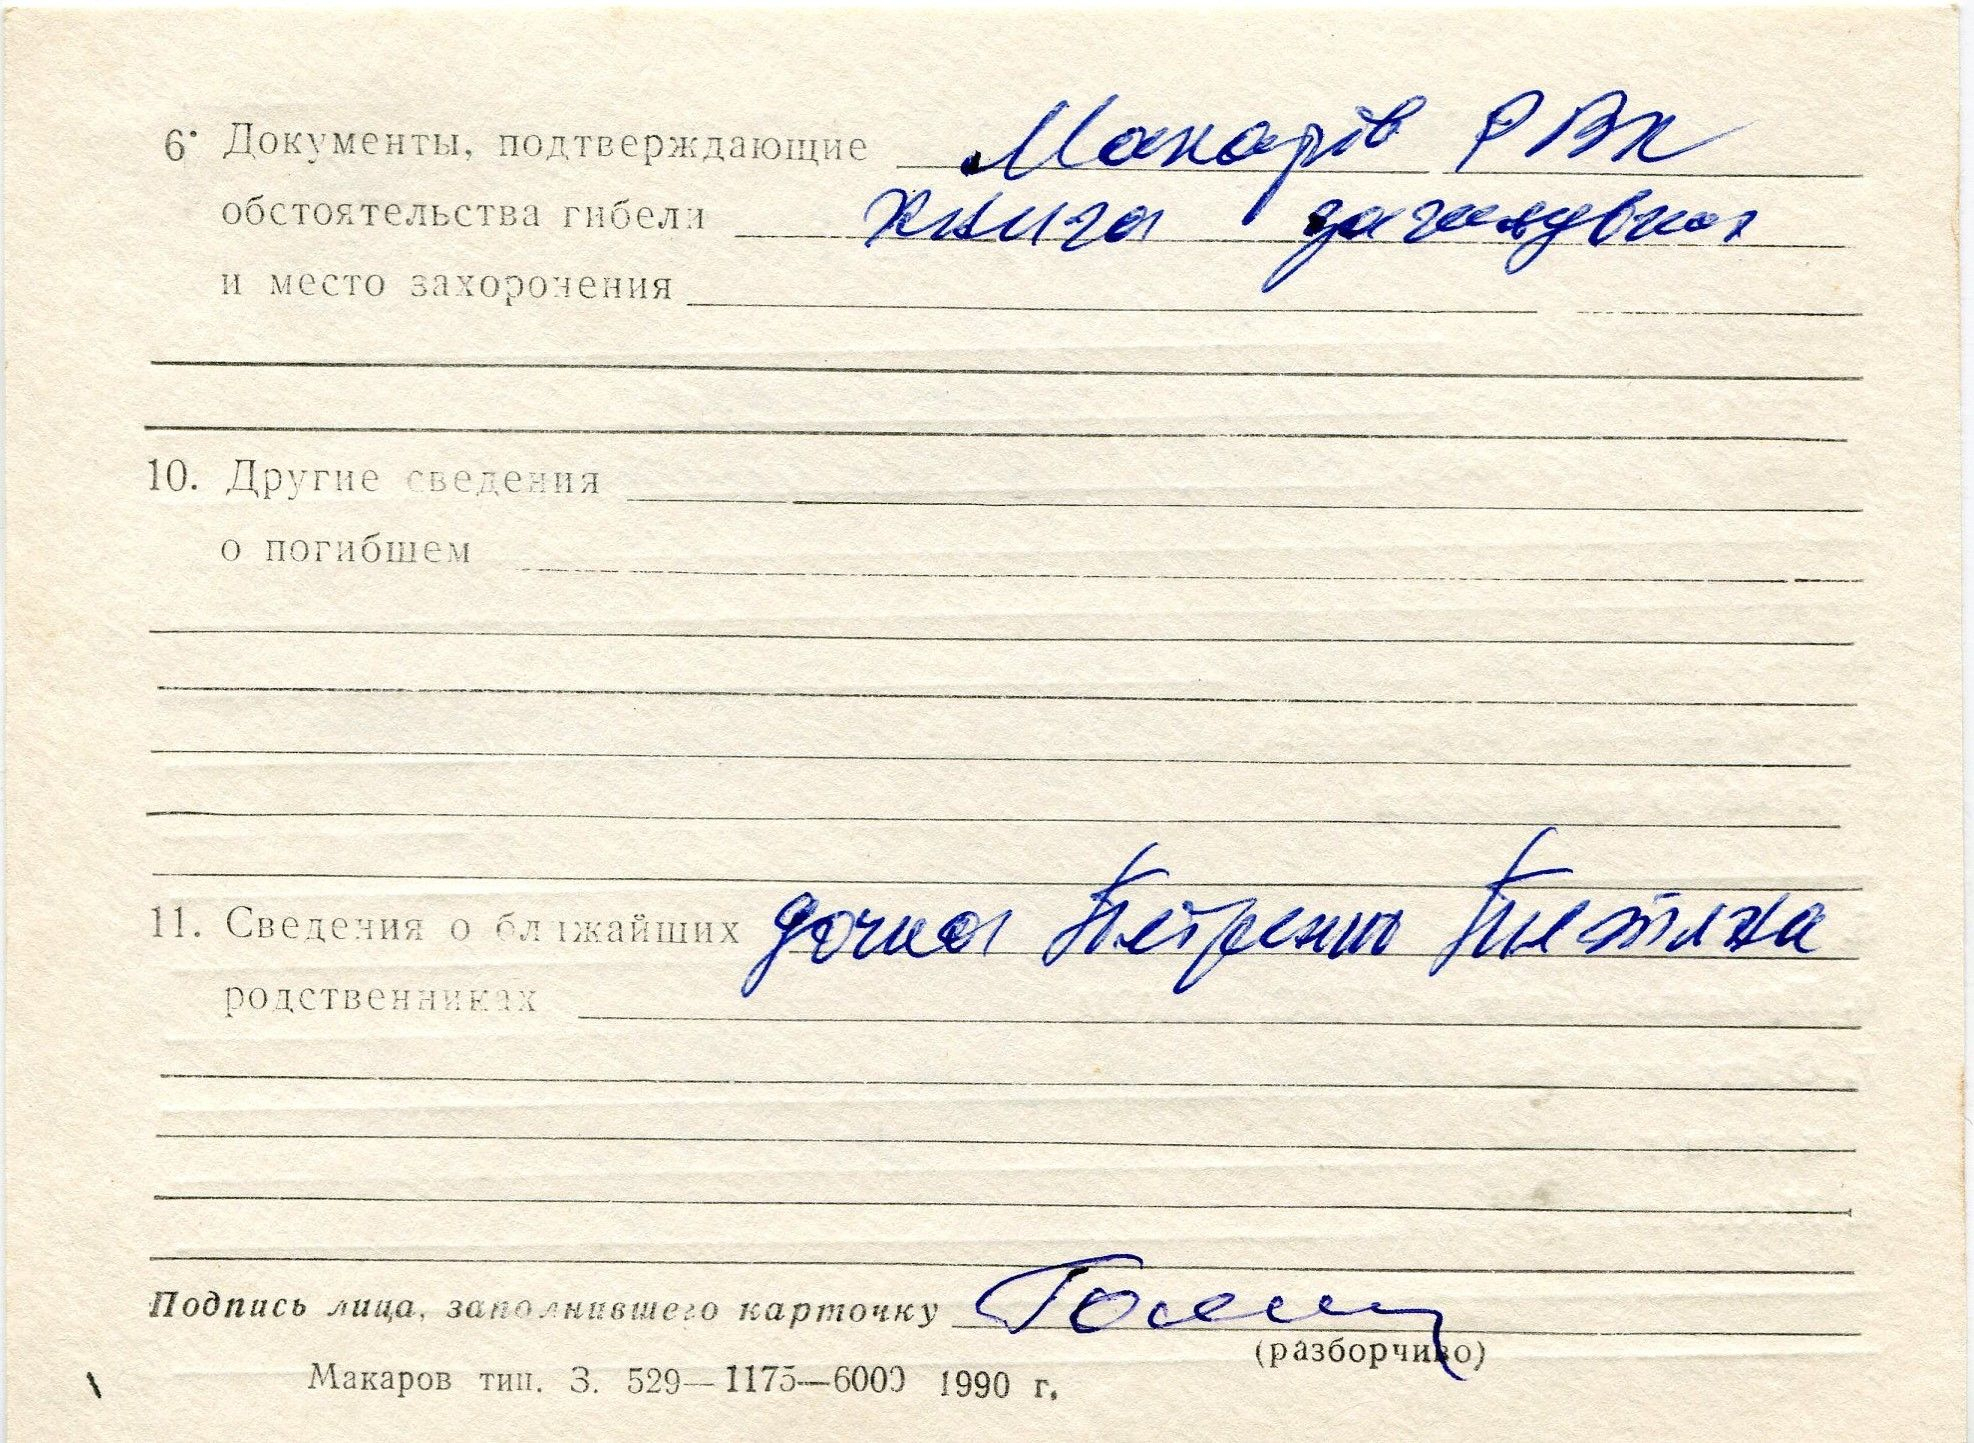 6. Документы, подтверждающие Макарів РВК
обстоятельства гибели книга
и место захоронения
10. Другие сведения
о погибшем
11. Сведения о ближайших дочка Петренко
родственниках
Подпись лица, заполнившего карточку
(разборчиво)
Макаров тип. З. 529—1175—6000 1990 г.